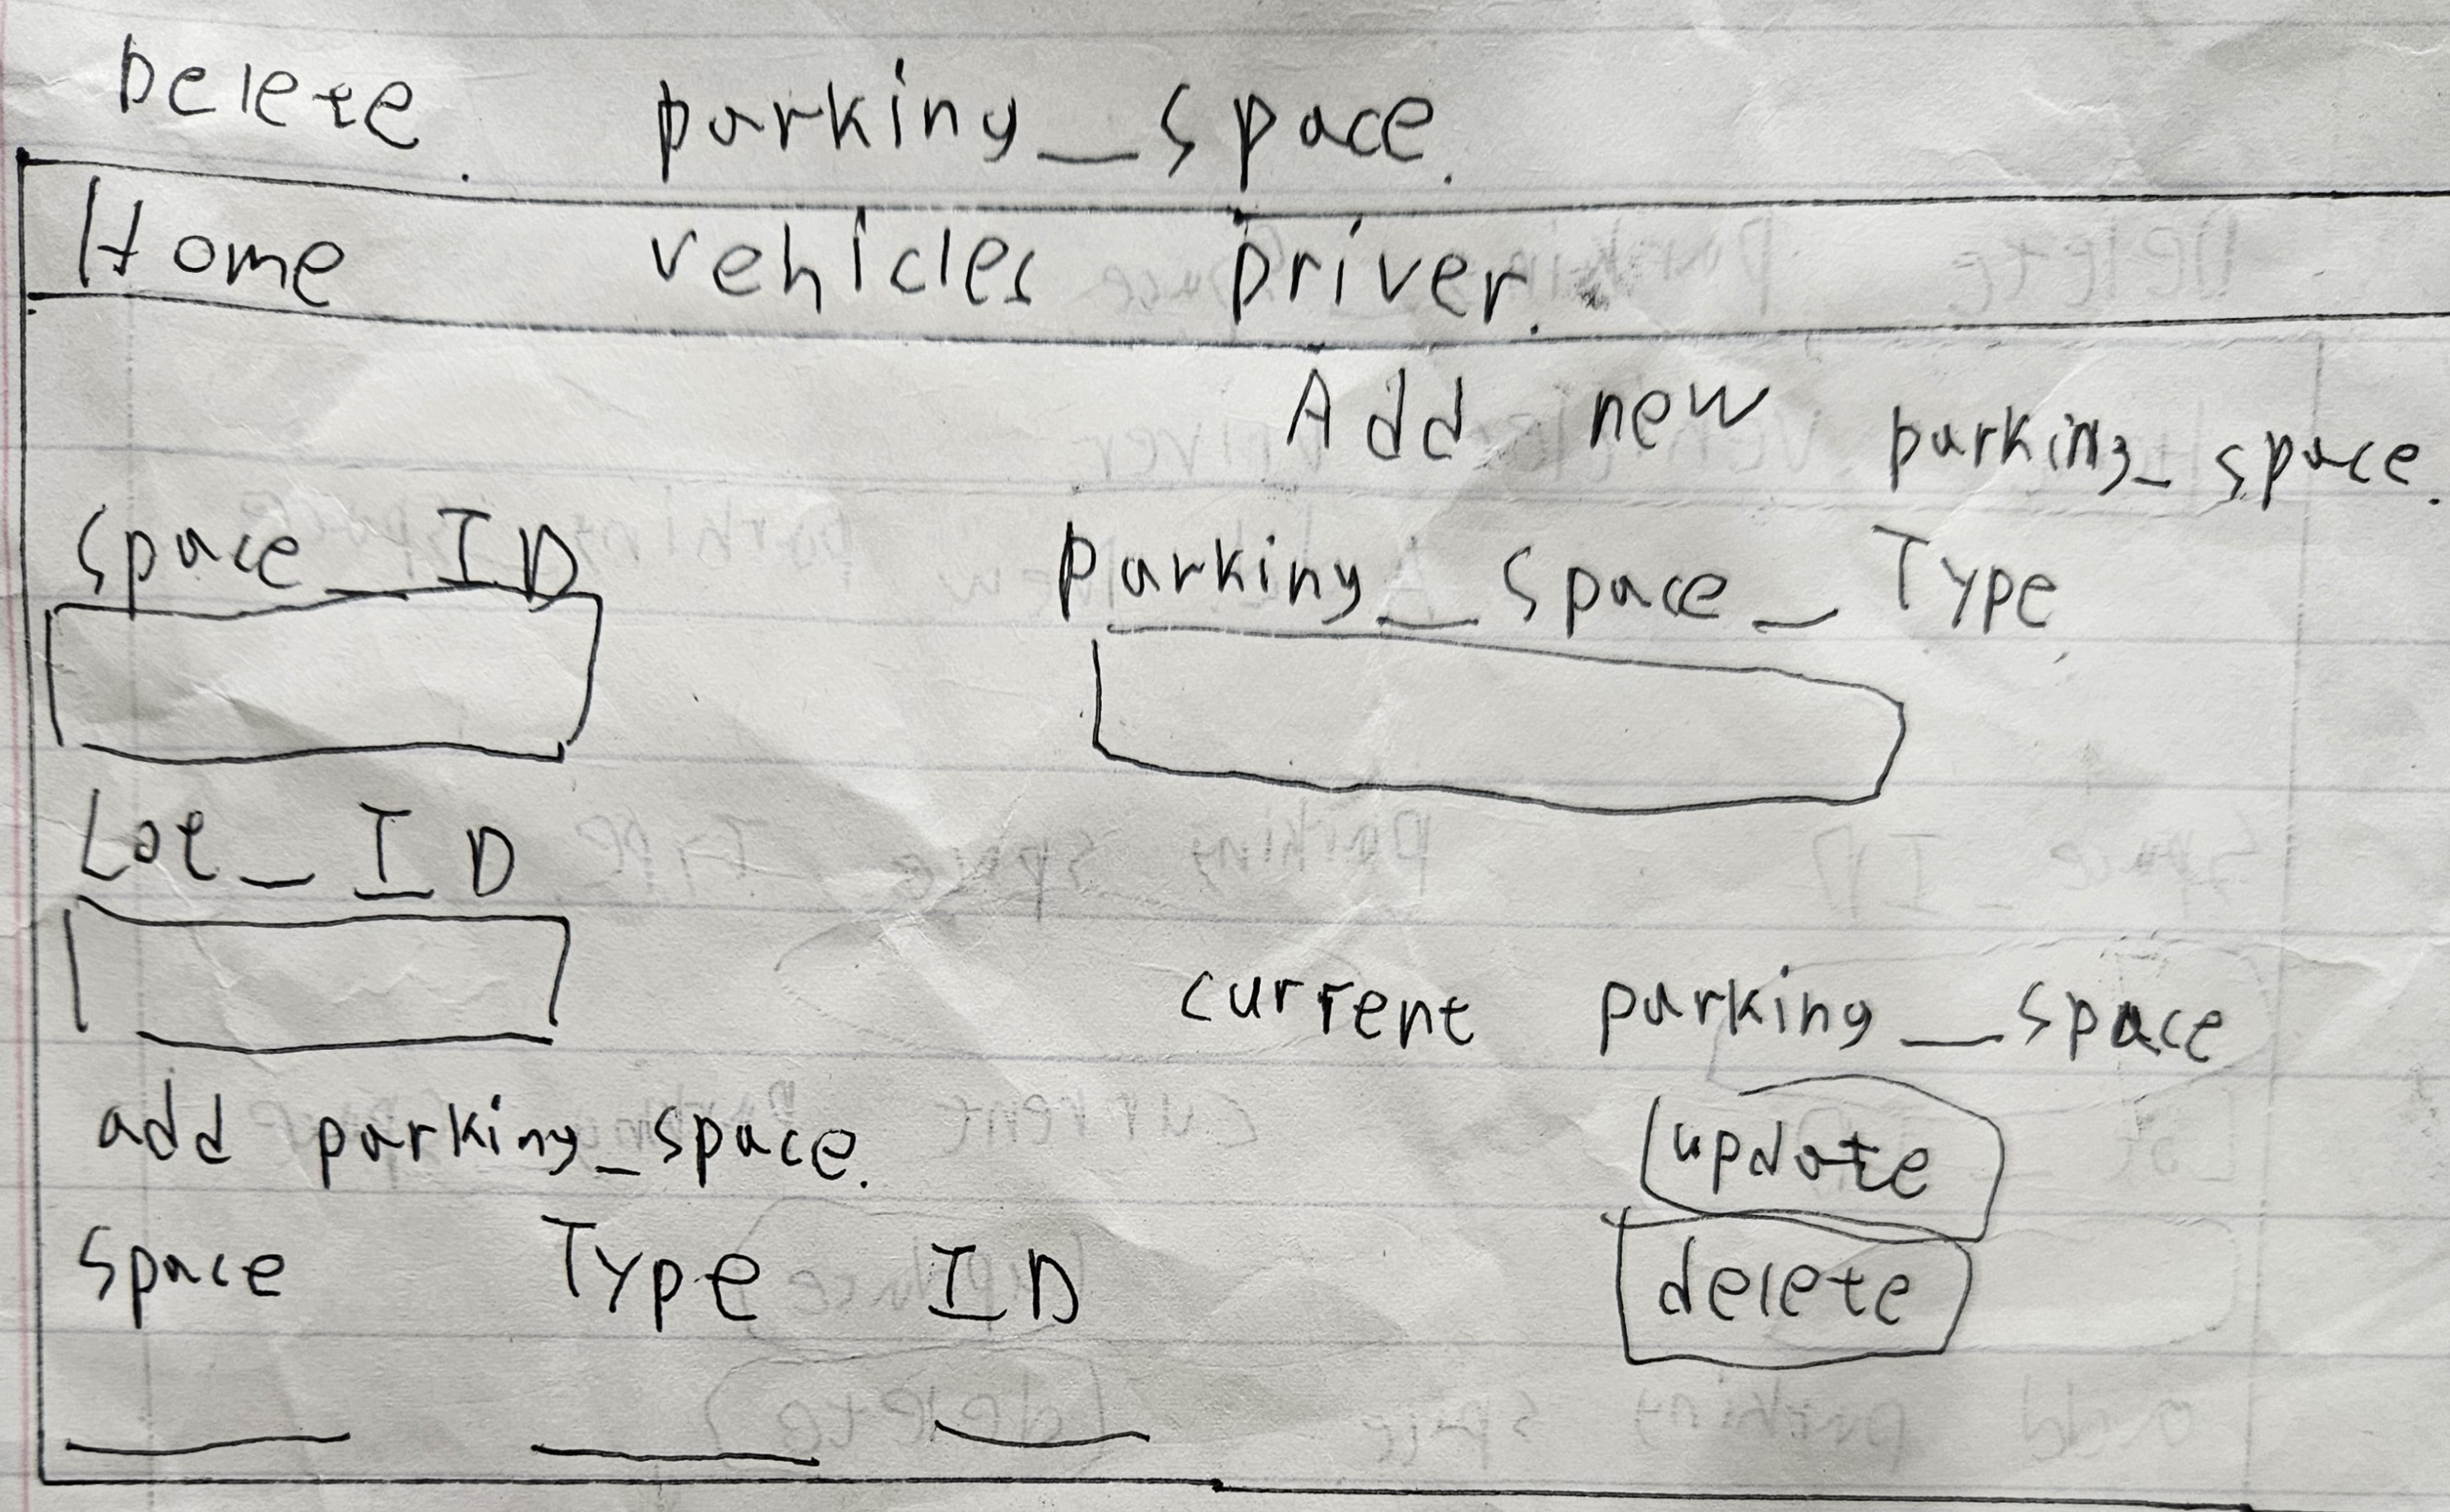 Delete parking_space.
Home vehicles Driver.
Add new parking_space.
Space_ID parking_space_Type
Lot_ID
current parking_space
add parking_space.
update
Space Type ID
delete